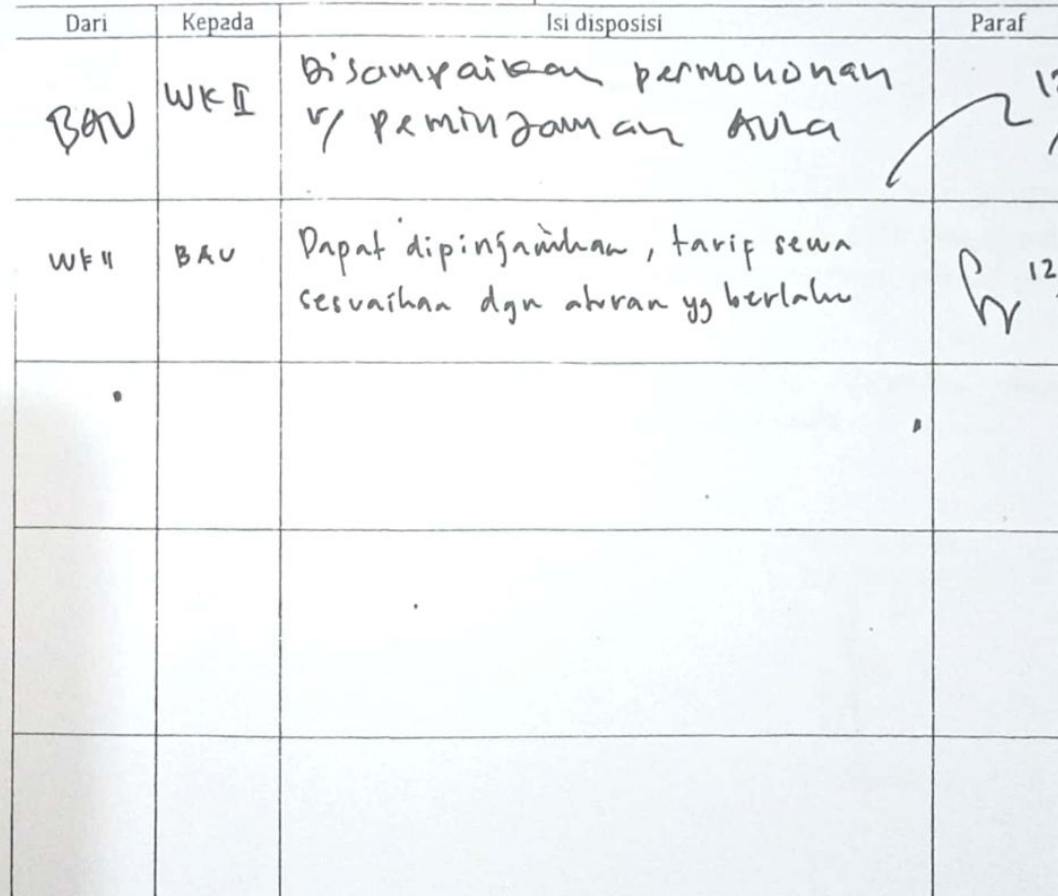 Dari Kepada Isi disposisi Paraf
BAU WK II Disampaikan permohonan
u/ peminjaman Aula
WK II BAU Dapat dipinjamkan, tarif sewa 12
sesuaikan dgn aturan yg berlaku